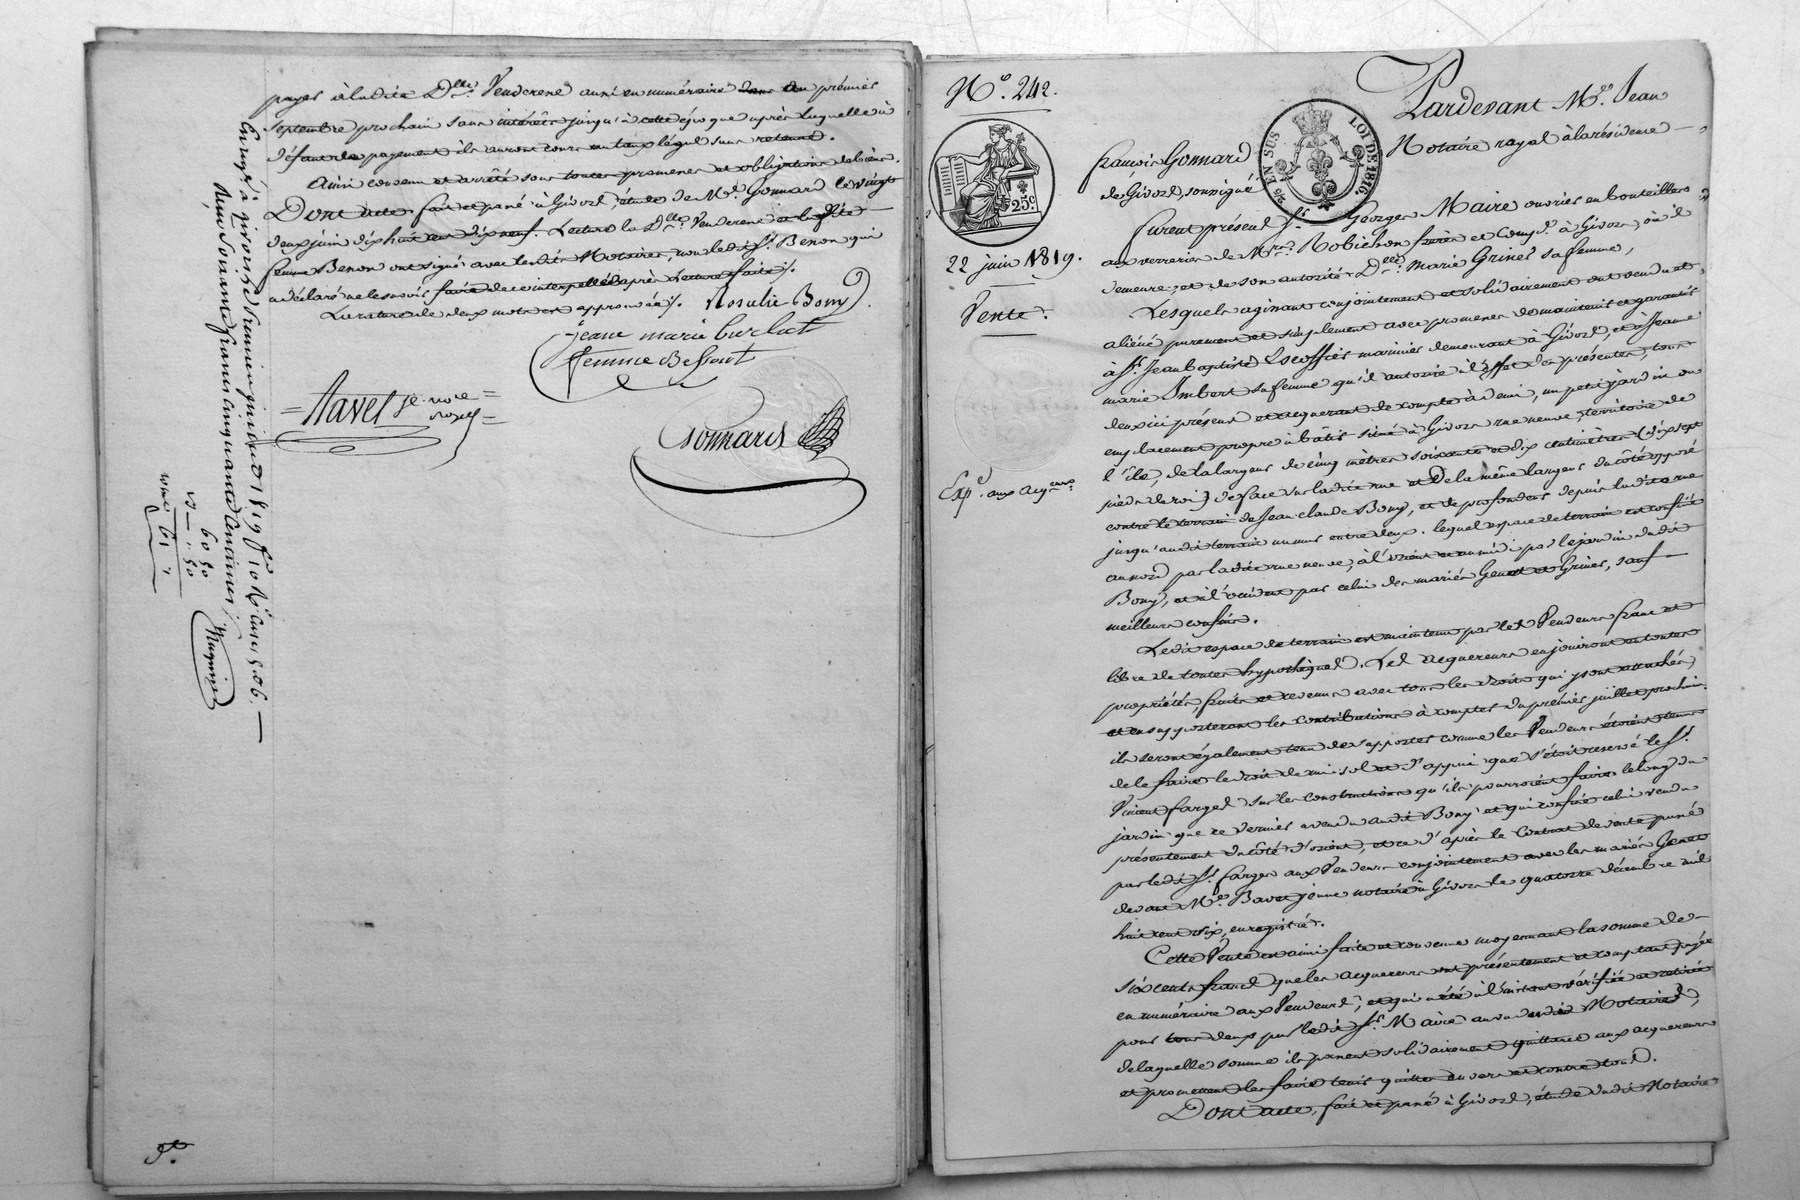 payer à ladite Dlle. Venderene aussi en numéraire dans au premier
septembre prochain sans intérêts jusqu'à cette époque après laquelle à
défaut de payement ils auront cours au taux légal sans retenue.
Ainsi convenu et arrêté sous toutes promesses et obligations de biens.
Dont acte, fait et passé à Givors, étude de Me. Gonnard le vingt
deux juin dix huit cent dix neuf. Lecture la Dlle. Venderene et ladite
femme Benon ont signé avec lesdits Notaires, non ledit Sr. Benon qui
a déclaré ne le savoir faire de ce interpellé après lecture faite ./.
La rature de deux mots est approuvée ./. Rosalie Bony
jeane marie burlat
femme
Gonnard
Enregé. à Givors le juin 1819 fo. 10
soixante francs cinquante centimes
60 50
No. 242.
22 juin 1819.
Vente.
Expd. aux acqeurs
25c
EN SUS
LOI DE 1816.
Pardevant Me. Jean
françois Gonnard Notaire royal à la résidence
de Givors, soussigné
furent présent Sr. Georges Maire ouvrier en bouteilles
aux verreries de Mrs. Robichon frères et Compe. à Givors, où il
demeure, et de son autorité Dlle. Marie Grines sa femme,
Lesquels agissant conjointement et solidairement ont vendu et
aliéné purement et simplement avec promesse de maintenir et garantir
à Sr. Jean Baptiste Escoffier marinier demeurant à Givors, et à Jeanne
marie Imbert sa femme qu'il autorise à l'effet des présentes, tous
deux ici présens et acquerant de compte à demi, un petit jardin ou
emplacement propre à bâtir situé à Givors rue neuve, territoire de
l'île, de la largeur de cinq mètres soixante et dix centimètres (dix sept
pieds de roi) de face sur ladite rue et de la même largeur du côté opposé
contre le terrain de Jean claude Bony, et de profondeur depuis ladite rue
jusqu'audit terrain un mur entre deux. lequel espace de terrain est confiné
au nord par ladite rue neuve, à l'orient et au midi par le jardin dudit
Bony, et à l'occident par celui des mariés Genet et Grines, sauf
meilleurs confins.
Ledit espace de terrain est maintenu par les Vendeurs franc et
libre de toutes hypothèques. Les acquereurs en jouiront en toutes
propriétés, fruits et revenus avec tous les droits qui y sont attachés,
et en supporteront les contributions à compter du premier juillet prochain.
ils seront également tenu de supporter comme les Vendeurs étoient tenus
de le faire le droit de mi sol et d'appui que s'étoit reservé le Sr.
Vincent farges sur les constructions qu'ils pourroient faire le long du
jardin que ce dernier a vendu audit Bony et qui confine celui vendu
présentement du côté d'orient, et ce d'après le contrat de vente passé
par ledit Sr. farges aux Vendeurs conjointement avec les mariés Genet
devant Me. Bavet jeune notaire à Givors le quatorze décembre mil
huit cent dix, enregistré.
Cette Vente est ainsi faite et convenue moyennant la somme de
six cents francs que les acquereurs ont présentement et comptant payée
en numéraire aux Vendeurs, et qui a été à l'instant vérifiée et retirée
pour tous deux par ledit Sr. Maire au vu desdits Notaires,
de laquelle somme ils passent solidairement quittance aux acquereurs
et promettent les faire tenir quittes envers et contre tous.
Dont acte, fait et passé à Givors, étude dudit Notaire